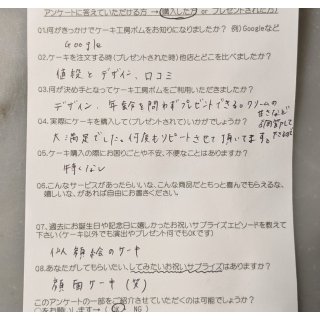 アンケートに答えていただける方 → (購入した方 or プレゼントされた方)
01.何がきっかけでケーキ工房ボムをお知りになりましたか? 例)Googleなど
Google
02.ケーキを注文する時(プレゼントされた時)他店とどこを比べましたか?
値段とデザイン、口コミ
03.何が決め手となってケーキ工房ボムをご利用いただきましたか?
デザイン、年齢を問わずプレゼントできる。クリームの甘さなど
04.実際にケーキを購入して(プレゼントされて)いかがでしょうか?
大満足でした。何度もリピートさせて頂いてます。
05.ケーキ購入の際にお困りごとや不安、不便なことはありますか?
特になし
06.こんなサービスがあったらいいな、こんな商品だともっと喜んでもらえるな、
嬉しいな、があれば自由にお書きください。
07.過去にお誕生日や記念日に嬉しかったお祝いサプライズエピソードを教えて
下さい(ケーキ以外でも演出やプレゼント何でもOKです)
似顔絵のケーキ
08.あなたがしてもらいたい、してみたいお祝いサプライズはありますか?
顔面ケーキ(笑)
このアンケートの一部をご紹介させていただくのは可能でしょうか?
○をお願いします→ ( OK NG )